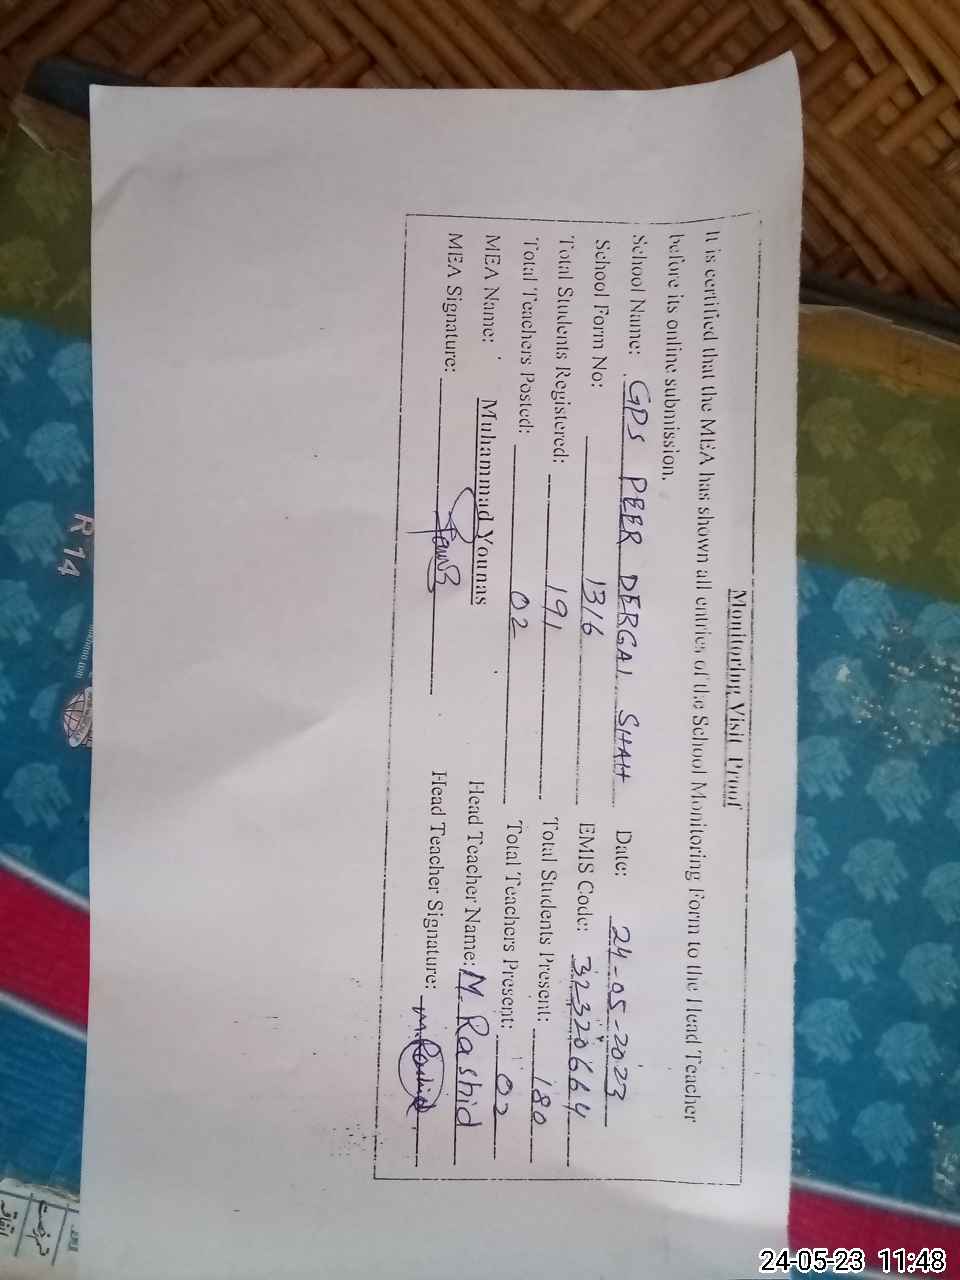 Monitoring Visit Proof
It is certified that the MEA has shown all entries of the School Monitoring Form to the Head Teacher
before its online submission.
School Name: GPS PEER DERGAI SHAH Date: 24-05-2023
School Form No: 1316 EMIS Code: 32320664
Total Students Registered: 191 Total Students Present: 180
Total Teachers Posted: 02 Total Teachers Present: 02
MEA Name: Muhammad Younas Head Teacher Name: M. Rashid
MEA Signature: Head Teacher Signature: M. Rashid
R 14
24-05-23 11:48